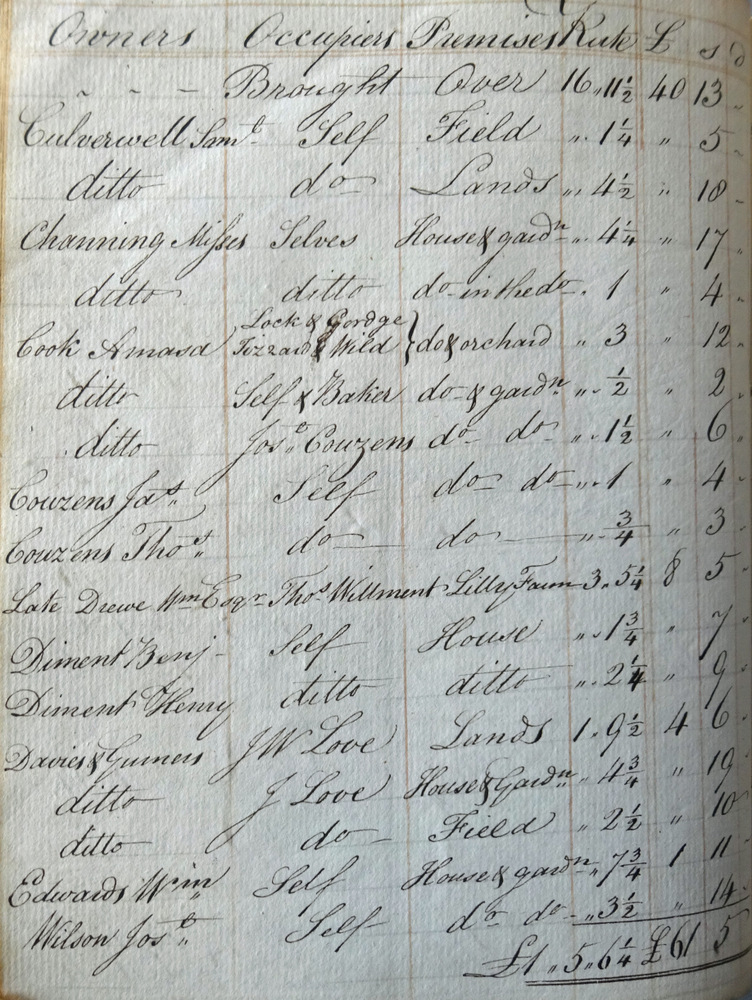 Owners Occupiers Premises Rate £ s d
" " " Brought Over 16 " 11½ 40 13 "
Culverwell Saml Self Field " " 1¼ " 5 "
ditto do Lands " " 4½ " 18 "
Channing Misses Selves House & gardn " " 4¼ " 17 "
ditto ditto do in the do " 1 " 4 "
Lock & Gordge
Cook Amasa Tizzard & Wild } do & orchard " 3 " 12 "
ditto Self & Baker do & gardn " " ½ " 2 "
ditto Josh Cowzens do do " " 1½ " 6 "
Cowzens Jas Self do do " " 1 " 4 "
Couzens Thos do do " " ¾ " 3 "
Late Drewe Wm Esqr Thos Willment Lilly Farm 3 " 5¼ 8 5 "
Diment Benj Self House " " 1¾ " 7 "
Diment Henry ditto ditto " " 2¼ " 9 "
Davies & J W Love Lands 1 " 9½ 4 6 "
ditto J Love House & Gardn " 4¾ " 19 "
ditto do Field " 2½ " 10 "
Edwards Wm Self House & gardn " 7¾ 1 11 "
Wilson Josh Self do do " 3½ " 14 "
£1 " 5 " 6¼ £61 5